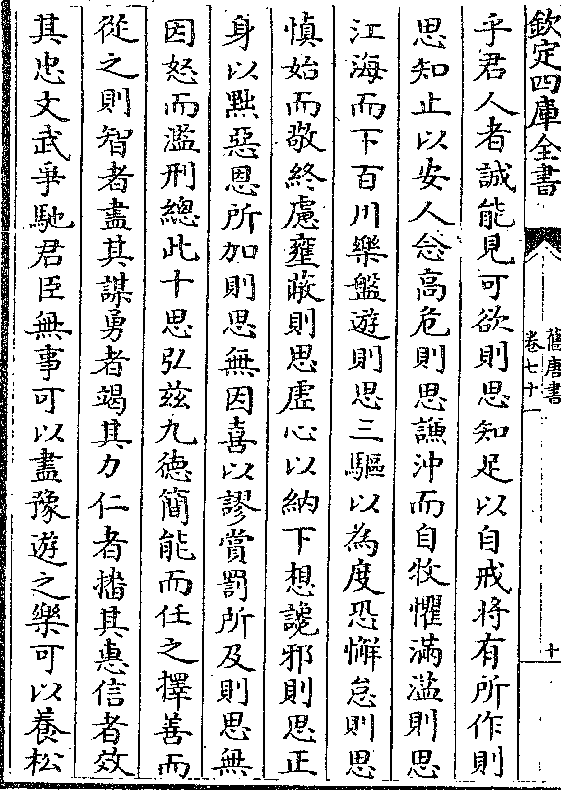 欽定四庫全書
舊唐書
卷七十一
十
乎君人者誠能見可欲則思知足以自戒將有所作則
思知止以安人念高危則思謙沖而自牧懼滿溢則思
江海而下百川樂盤遊則思三驅以為度恐懈怠則思
慎始而敬終慮壅蔽則思虛心以納下想讒邪則思正
身以黜惡恩所加則思無因喜以謬賞罰所及則思無
因怒而濫刑總此十思弘茲九德簡能而任之擇善而
從之則智者盡其謀勇者竭其力仁者播其惠信者效
其忠文武爭馳君臣無事可以盡豫遊之樂可以養松